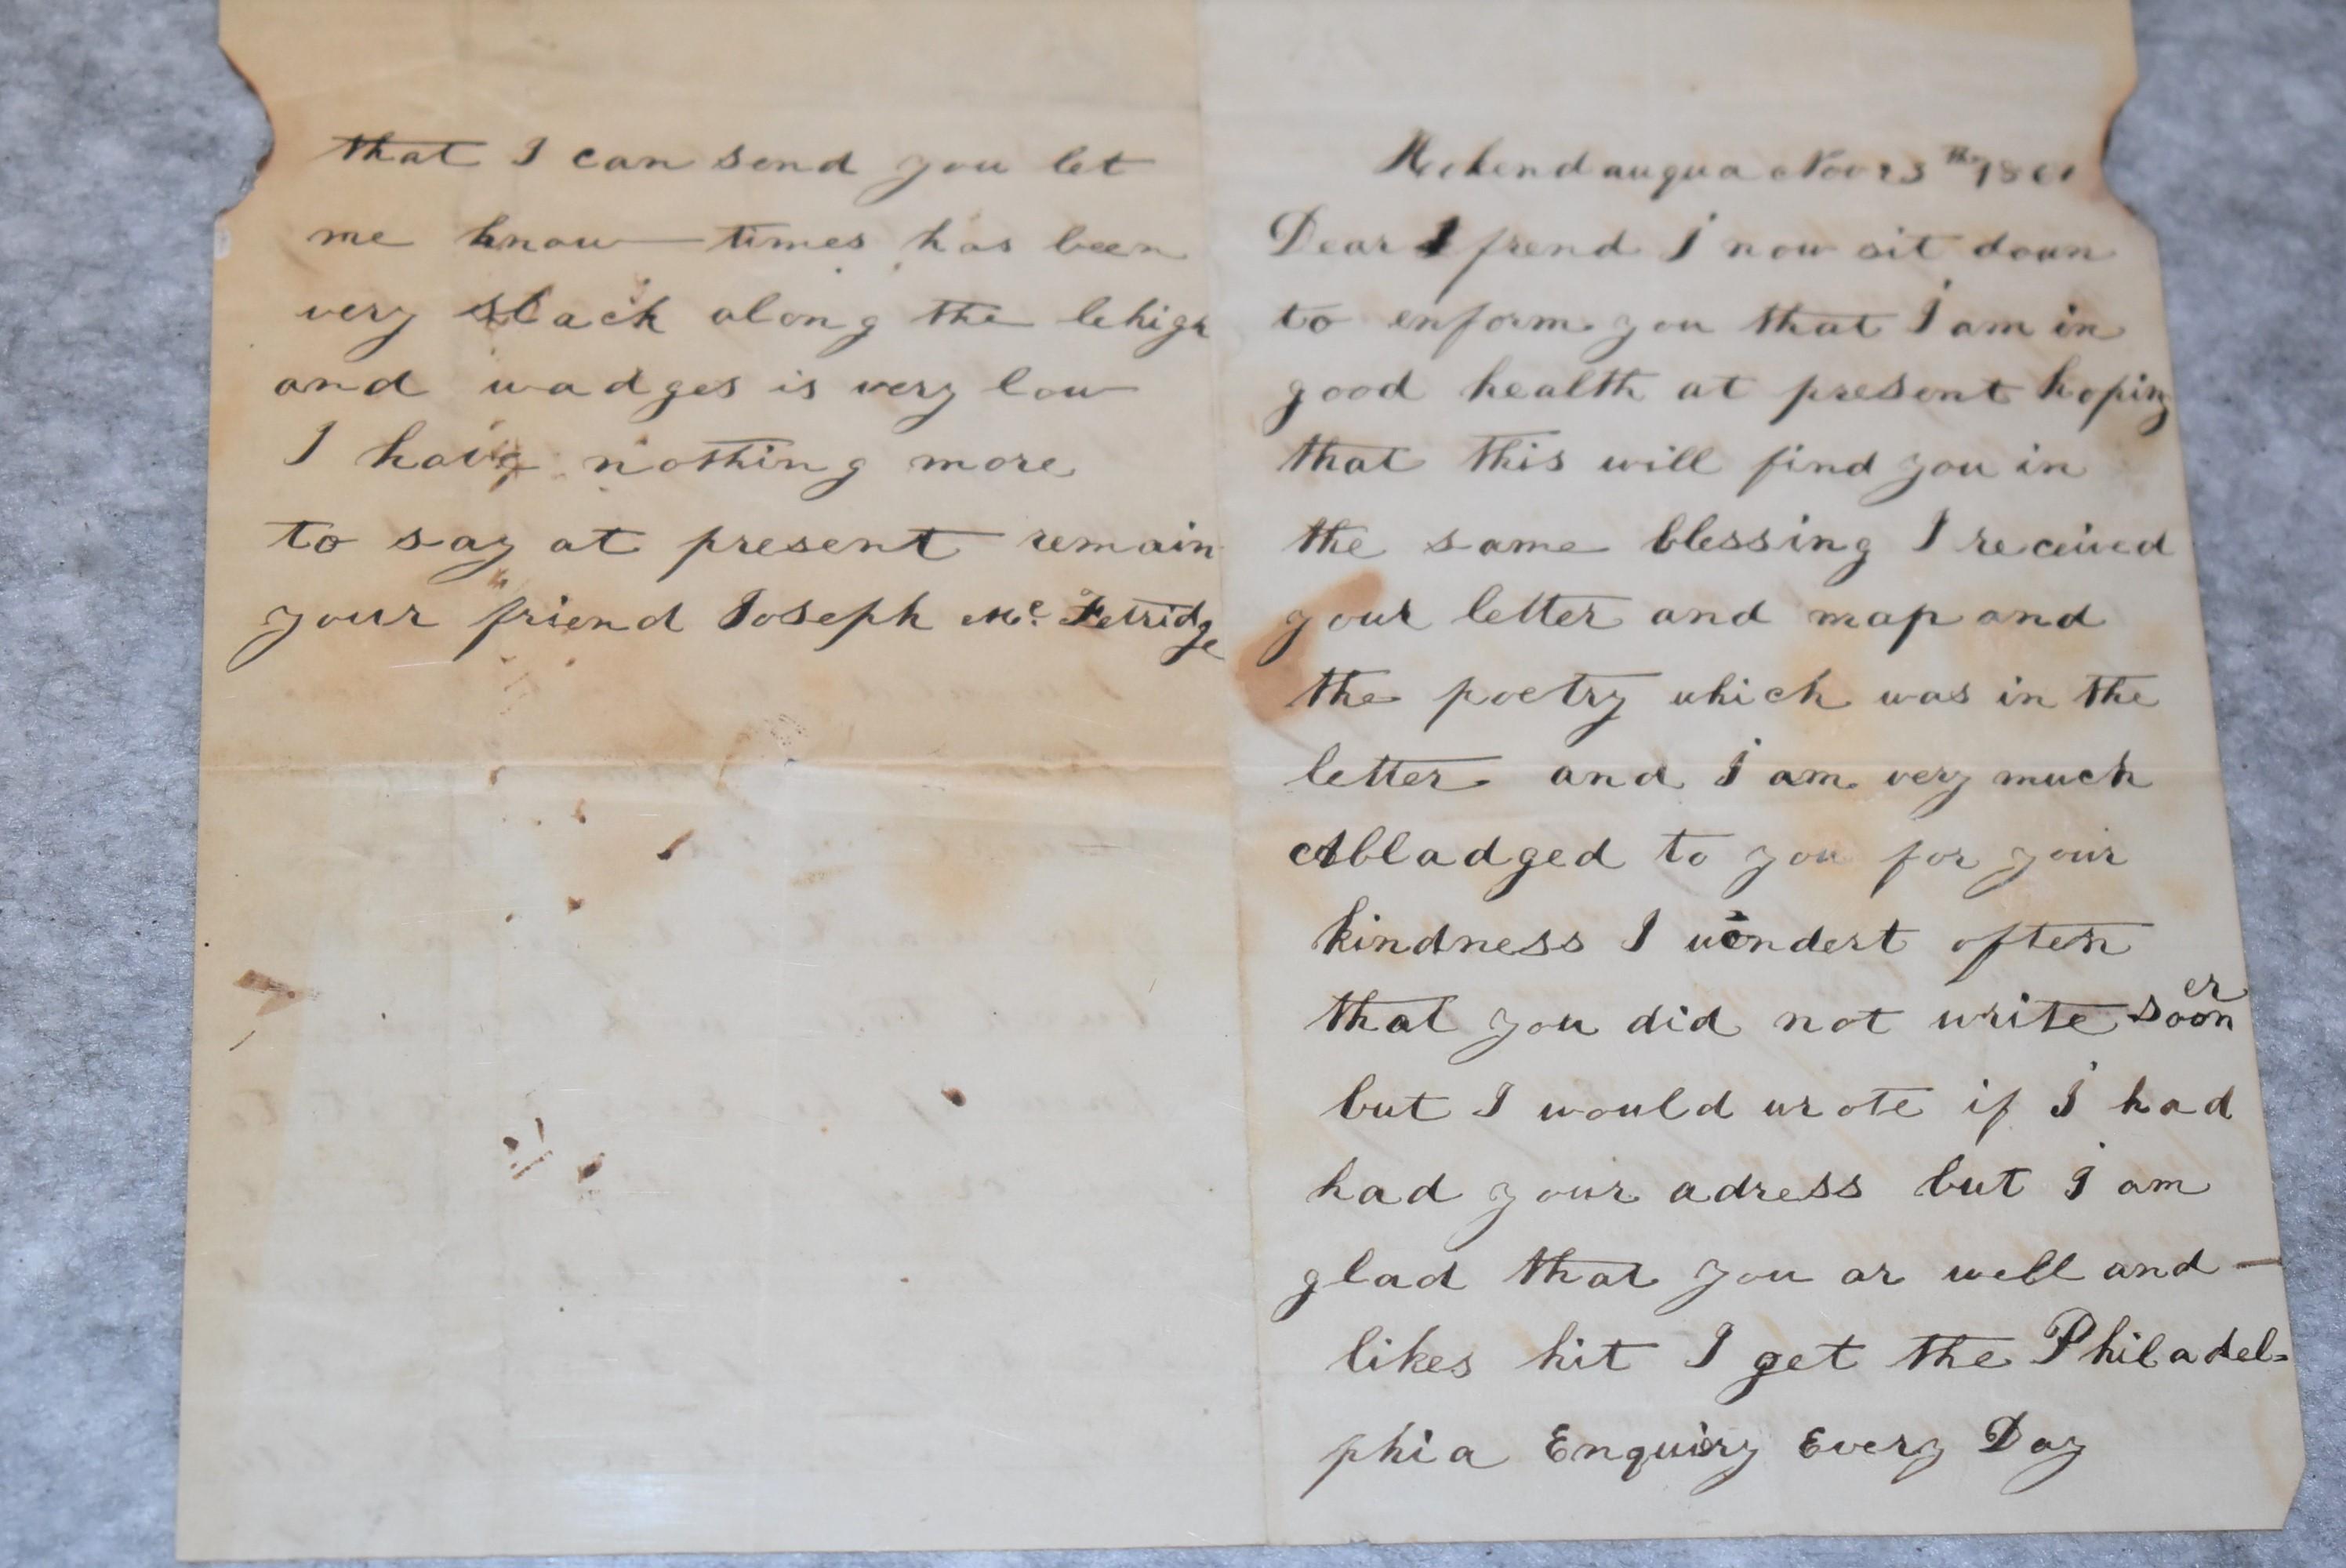 Hokendauqua Nov 23th 1861
Dear frend I now sit doun
to enform you that I am in
good health at present hoping
that this will find you in
the same blessing I received
your letter and map and
the poetry which was in the
letter and I am very much
Abladged to you for your
kindness I wondert often
that you did not write sooner
but I would wrote if I had
had your adress but I am
glad that you ar well and —
likes hit I get the Philadel=
phia Enquiry Every Day
that I can send you let
me know — times has been
very slack along the lehigh
and wadges is very low
I have nothing more
to say at present remain
your friend Joseph Mc Fetridge